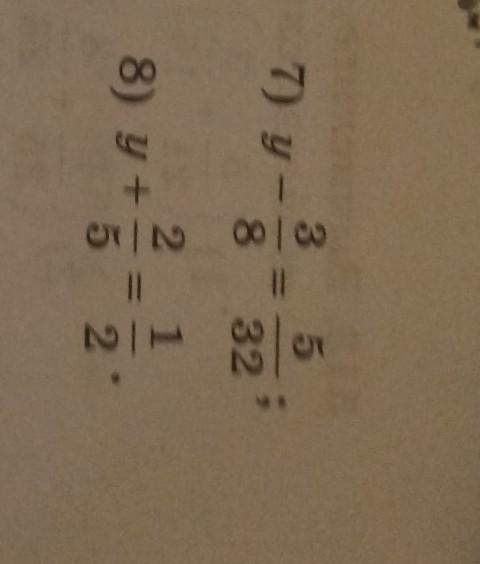 7) y − 3/8 = 5/32;
8) y + 2/5 = 1/2.